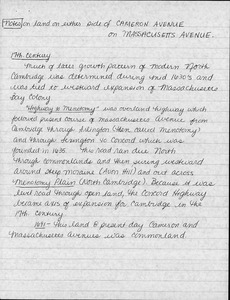 Notes on land on either side of CAMERON AVENUE
on MASSACUSETTS AVENUE.
17th Century
Much of later growth pattern of modern North
Cambridge was determined during mid 1630's and
was tied to westward expansion of Massachusetts
Bay Colony
"Highway to Menotomy" was overland highway which
followed present course of Massachusetts Avenue from
Cambridge through Arlington (then called Menotomy)
and through Arlington to Concord which was
founded in 1635. The road ran due North
through commonlands and then swung westward
around steep moraine (Avon Hill) and out across
Menotomy Plain (North Cambridge). Because it was
level road through open land, the Concord Highway
became axis of expansion for Cambridge in the
17th century.
- this land @ present day Cameron and
Massachusetts Avenues was commonland.